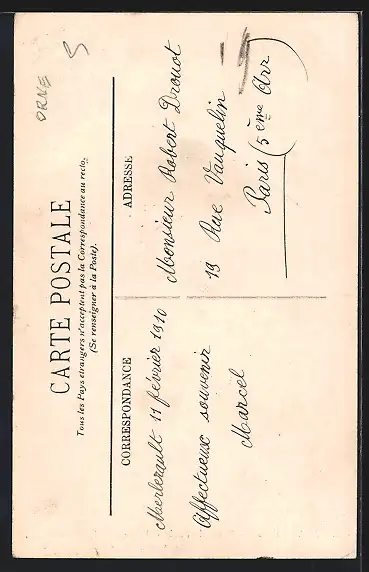 ORNE
5
CARTE POSTALE
Tous les Pays étrangers n'acceptent pas la Correspondance au recto.
(Se renseigner à la Poste).
CORRESPONDANCE
Merlerault 11 février 1910
Affectueux souvenir
Marcel
ADRESSE
Monsieur Robert Drouot
19 Rue Vauquelin
Paris (5ème Arr